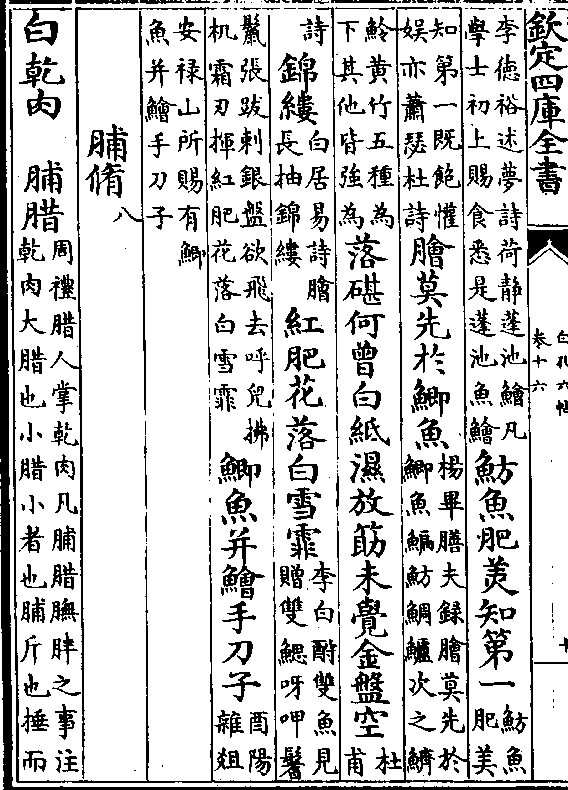 欽定四庫全書
白孔六帖
卷十六
李德裕述夢詩荷静蓬池鱠凡學士初上賜食悉是蓬池魚鱠魴魚肥羙知第一魴魚肥美
知第一既飽懽娱亦蕭瑟杜詩膾莫先於鯽魚楊畢膳夫録膾莫先於鯽魚鯿魴鯛鱸次之鱭
魿黄竹五種為下其他皆強為落碪何曾白紙濕放筯未覺金盤空杜甫
詩錦縷白居易詩膾長抽錦縷紅肥花落白雪霏李白酧雙魚見贈雙鰓呀呷鬐
鬛張跋剌銀盤欲飛去呼兒拂机霜刃揮紅肥花落白雪霏鯽魚并鱠手刀子酉陽雜俎
安禄山所賜有鯽魚并鱠手刀子
脯脩八
白乾肉 脯腊周禮腊人掌乾肉凡脯腊膴胖之事注乾肉大腊也小腊小者也脯斤也捶而